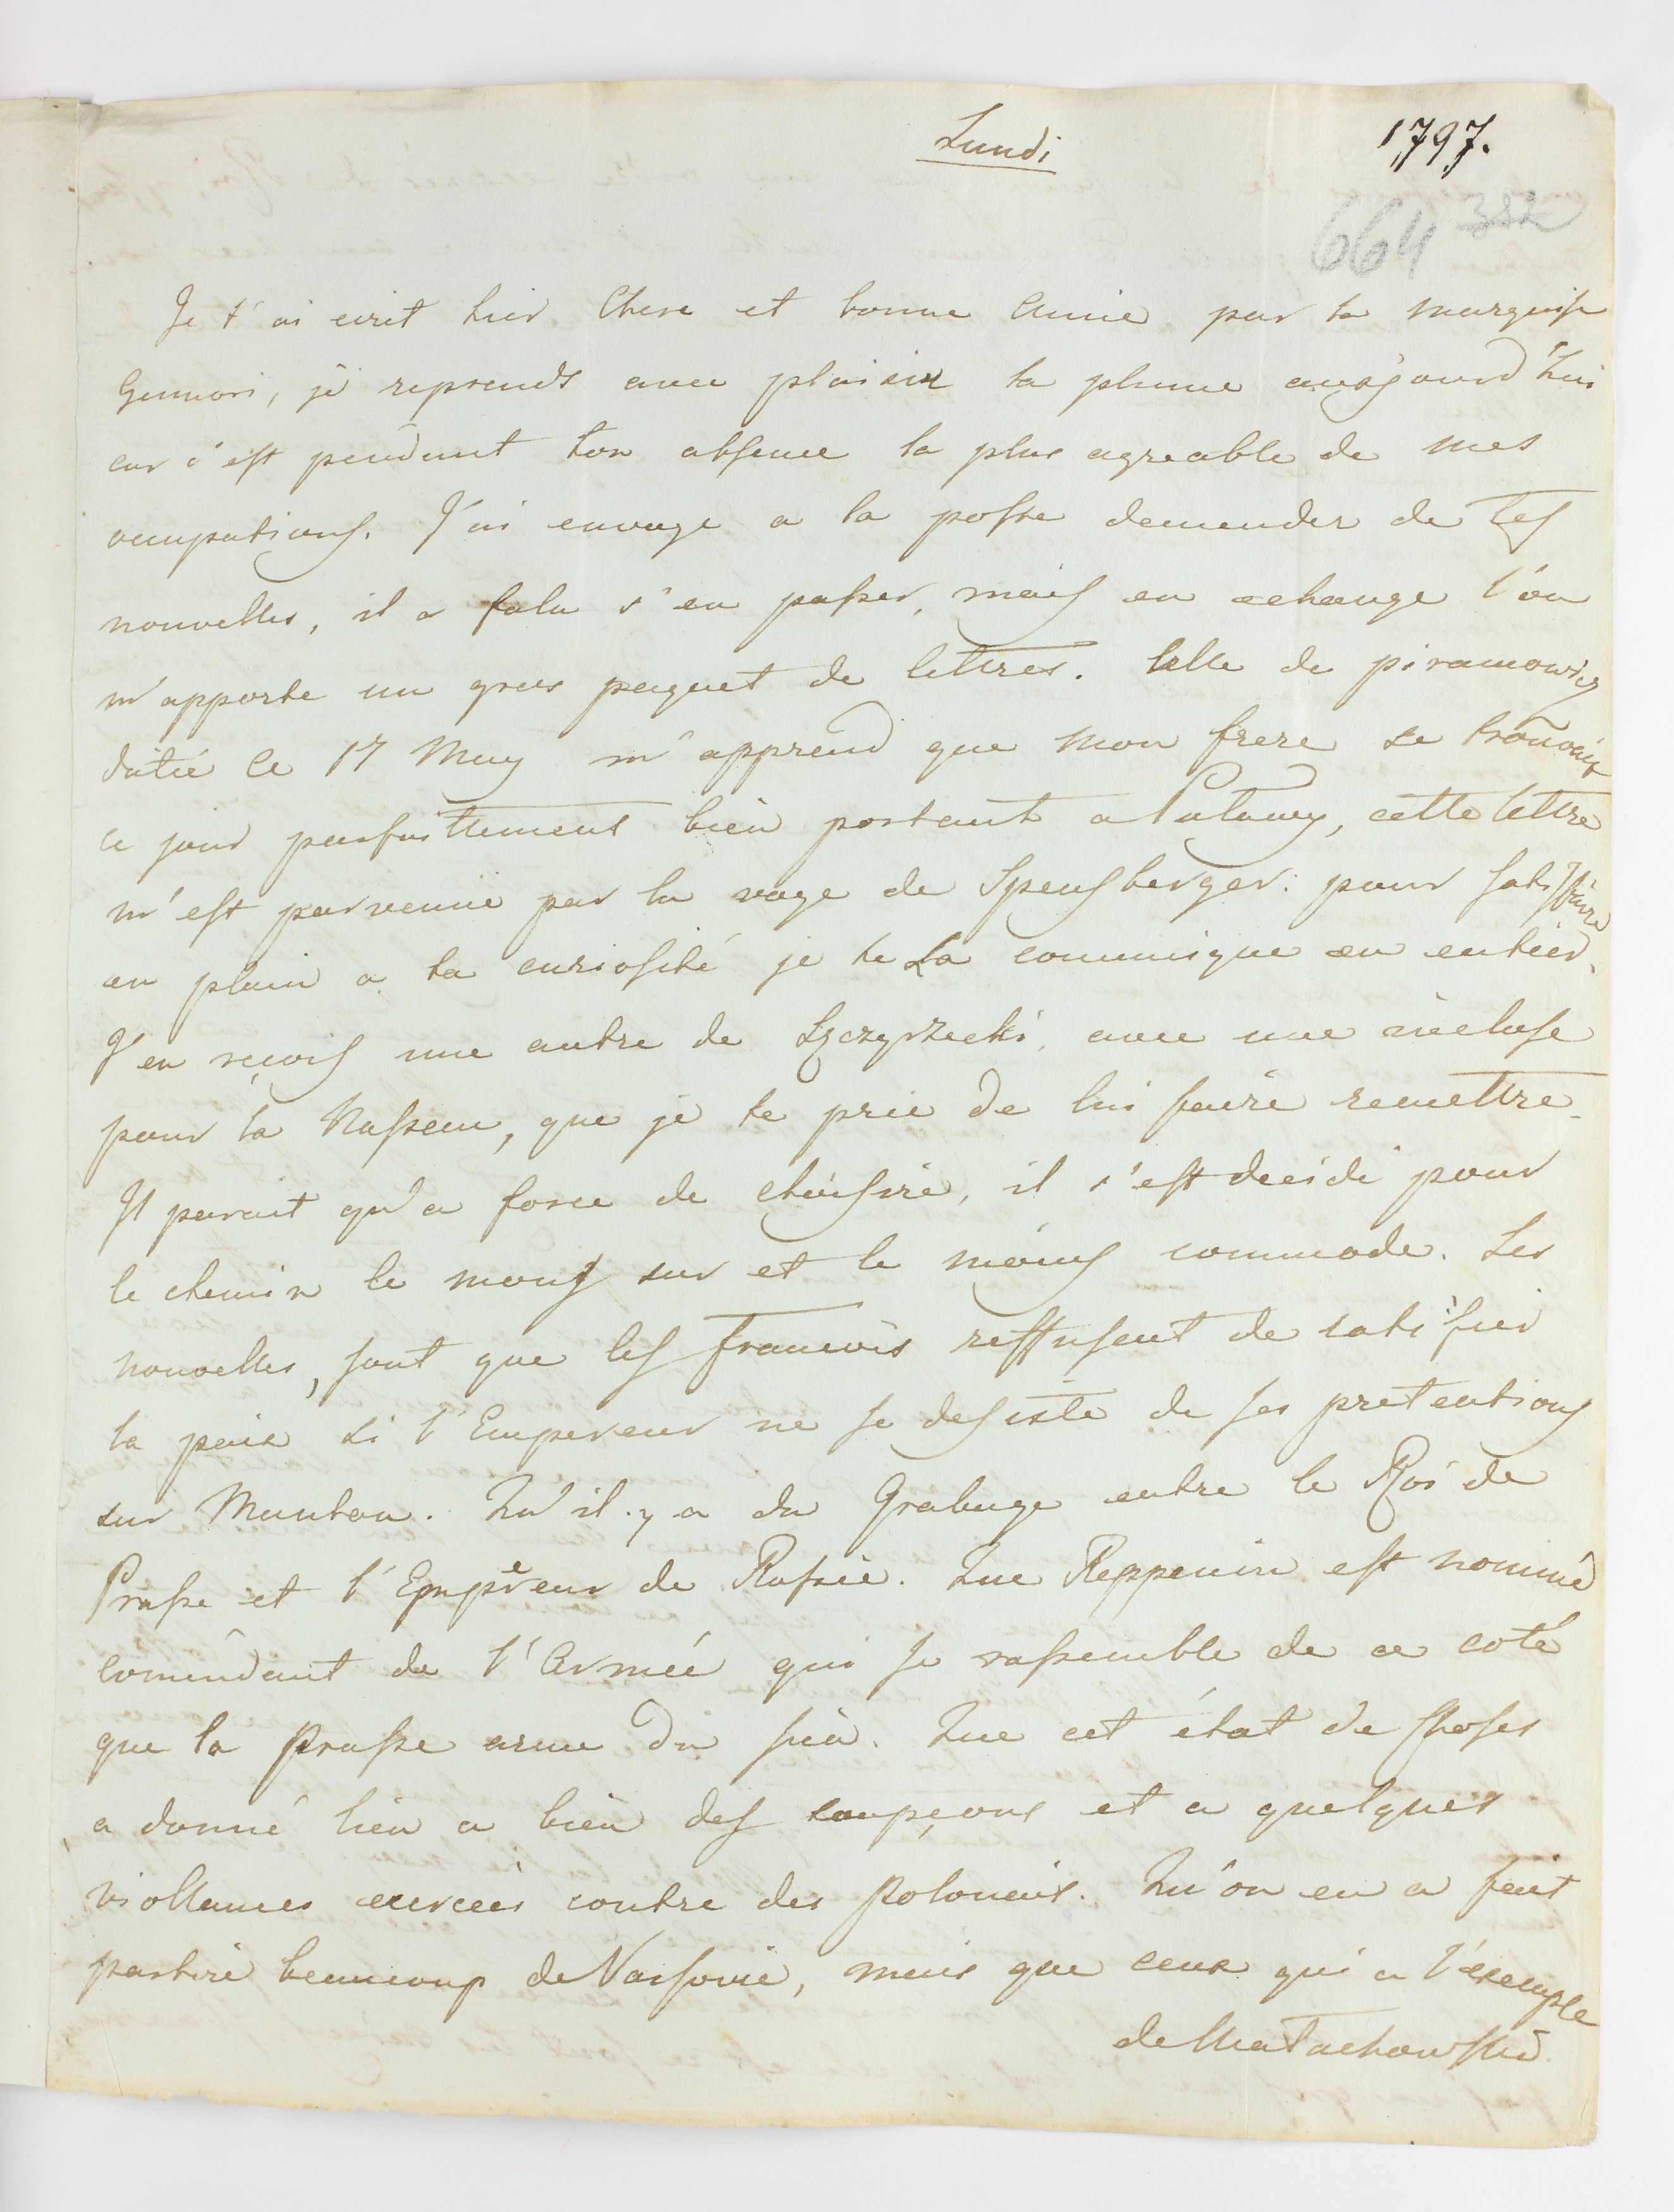 Lundi
1797.
664 382
Je t'ai ecrit hier Chere et bonne Amie par la marquise
Gunnori, je reprends avec plaisir la plume aujourd'hui
car c'est pendant ton absence la plus agreable de mes
occupations. J'ai envoye a la poste demander de tes
nouvelles, il a falu s'en passer, mais en echange l'on
m'apporte un gros paquet de lettres. Celle de piramowicz
datée le 17 May m'apprend que mon frere se trouvait
ce jour parfaittement bien portant a Pulawy, cette lettre
m'est parvenue par la voye de Spensberger: pour satisfaire
en plain a ta curiosité je te La comunique en entier.
J'en reçois une autre de Szczyrzecki, avec une incluse
pour la Nassau, que je te prie de lui faire remettre.
Il parait qu'a force de choisire, il s'est decidé pour
le chemin le moins sur et le moins commode. Les
nouvelles, sont que les francois reffusent de ratifier
la paix si l'Empereur ne se desiste de ses pretentions
sur Mantou. Qu'il y a du Grabuge entre le Roi de
Prusse et l'Empereur de Russie. Que Reppenin est nommé
comendant de l'Armée qui se rassemble de ce coté
que la Prusse arme du sien. Que cet état de choses
a donné lieu a bien des soupçons et a quelques
viollances exercées contre des polonais. Qu'on en a fait
partire beaucoup de Varsovie, mais que ceux qui a l'exemple
de Małachowski